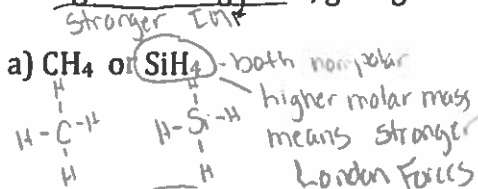 stronger IMF
a) CH4 or SiH4 - both nonpolar
higher molar mass
means stronger
London Forces
H
H-C-H
H
H
H-Si-H
H